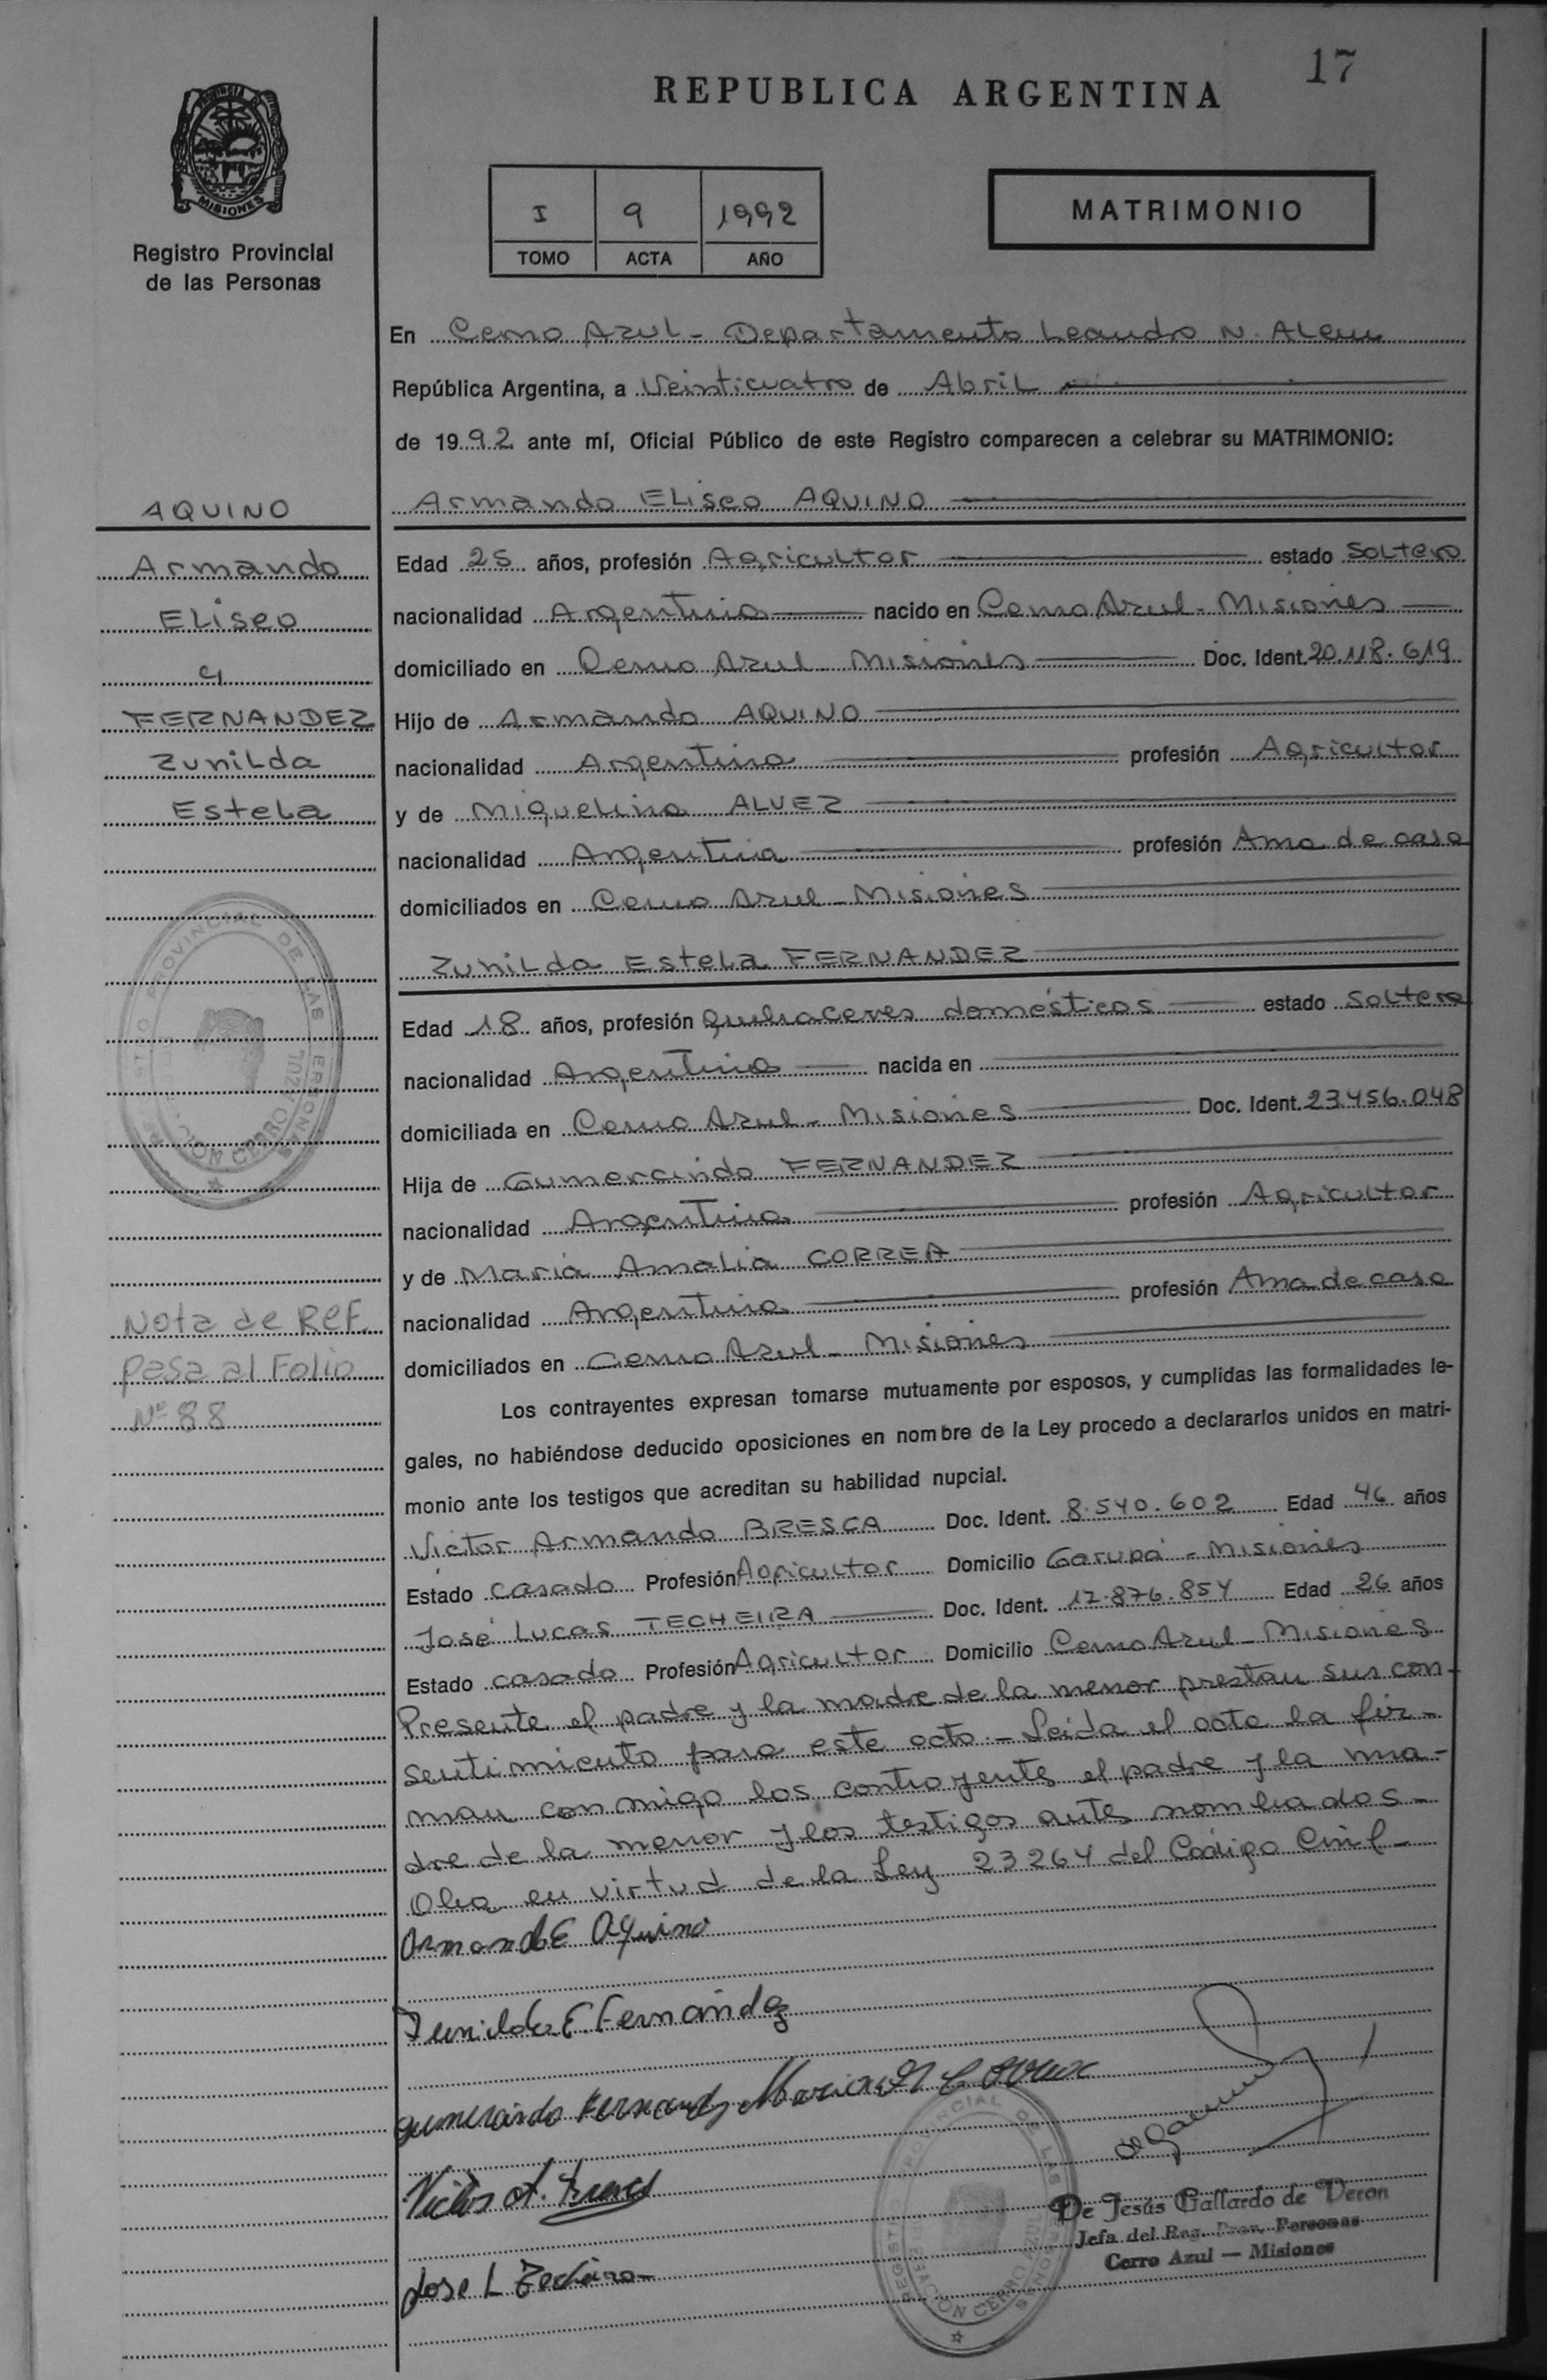 17
REPUBLICA ARGENTINA
MISIONES
Registro Provincial
de las Personas
I 9 1992
TOMO ACTA AÑO
MATRIMONIO
En Cerro Azul - Departamento Leandro N. Alem
República Argentina, a Veinticuatro de Abril
de 1992 ante mí, Oficial Público de este Registro comparecen a celebrar su MATRIMONIO:
AQUINO
Armando
Eliseo
y
FERNANDEZ
Zunilda
Estela
Nota de Ref.
pasa al Folio
Nº 88
Armando Eliseo AQUINO
Edad 25 años, profesión Agricultor estado Soltero
nacionalidad Argentina nacido en Cerro Azul - Misiones
domiciliado en Cerro Azul - Misiones Doc. Ident. 20.118.619
Hijo de Armando AQUINO
nacionalidad Argentina profesión Agricultor
y de Miguelina ALVEZ
nacionalidad Argentina profesión Ama de casa
domiciliados en Cerro Azul - Misiones
Zunilda Estela FERNANDEZ
Edad 18 años, profesión Quehaceres domésticos estado Soltera
nacionalidad Argentina nacida en
domiciliada en Cerro Azul - Misiones Doc. Ident. 23.456.048
Hija de Gumercindo FERNANDEZ
nacionalidad Argentina profesión Agricultor
y de María Amalia CORREA
nacionalidad Argentina profesión Ama de casa
domiciliados en Cerro Azul - Misiones
Los contrayentes expresan tomarse mutuamente por esposos, y cumplidas las formalidades le-
gales, no habiéndose deducido oposiciones en nombre de la Ley procedo a declararlos unidos en matri-
monio ante los testigos que acreditan su habilidad nupcial.
Victor Armando BRESCA Doc. Ident. 8.540.602 Edad 46 años
Estado casado Profesión Agricultor Domicilio Garupá - Misiones
José Lucas TECHEIRA Doc. Ident. 17.876.854 Edad 26 años
Estado casado Profesión Agricultor Domicilio Cerro Azul - Misiones
Presente el padre y la madre de la menor prestan sus con-
sentimiento para este acto.- Leida el acta la fir-
man conmigo los contrayentes el padre y la ma-
dre de la menor y los testigos antes nombrados-
en virtud de la Ley 23264 del Código Civil-
Armando E Aquino
Zunilda E. Fernández
Gumercindo Fernandez Maria A Correa
Victor A.
Jose L Techeira
De Jesús Gallardo de Veron
Jefa del Reg. Prov. Personas
Cerro Azul — Misiones